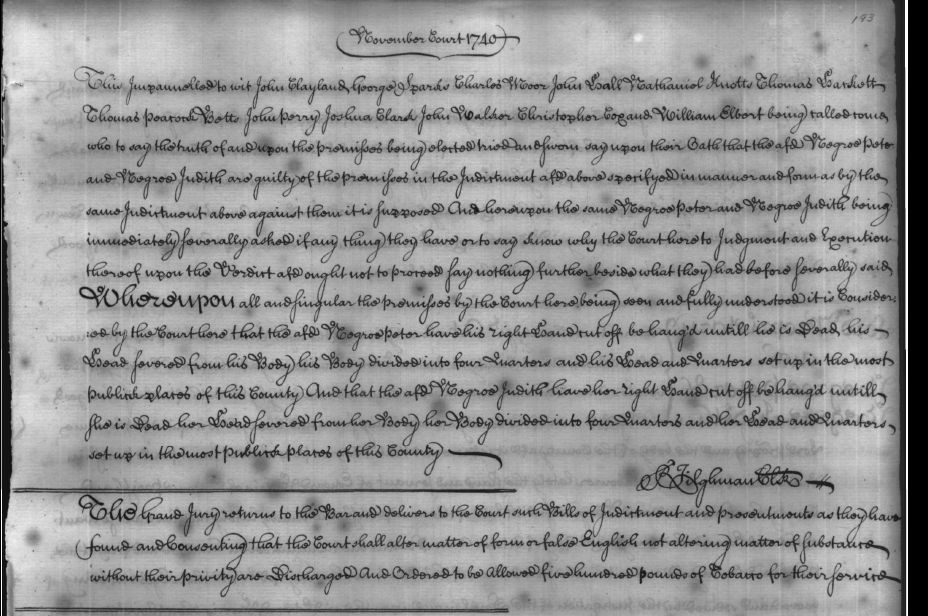 193
November Court 1740
Thus Impannelled to wit John Clayland George Sparks Charles Moor John Hall Nathaniel Knotts Thomas Hackett
Thomas Peacock Betts John Perry Joshua Clark John Walker Christopher Cox and William Elbert being called come
who to say the truth of and upon the premisses being elected tried and sworn say upon their Oath that the afd Negroe Peter
and Negroe Judith are guilty of the premisses in the Indictment afd above specifyed in manner and form as by the
same Indictment above against them it is supposed And hereupon the same Negroe Peter and Negroe Judith being
immediately severally asked if any thing they have or to say know why the Court here to Judgment and Execution
thereof upon the Verdict afd ought not to proceed say nothing further beside what they had before severally said
Whereupon all and singular the premisses by the Court here being seen and fully understood it is Consider:
:ed by the Court here that the afd Negroe Peter have his right Hand cut off be hang'd untill he is Dead, his
Head severed from his Body his Body divided into four Quarters and his Head and Quarters set up in the most
publick places of this County And that the afd Negroe Judith have her right Hand cut off be hang'd untill
she is Dead her Head severed from her Body her Body divided into four Quarters and her Head and Quarters
set up in the most publick places of this County
Tilghman Clk
The Grand Jury returns to the Bar and delivers to the Court such Bills of Indictment and presentments as they have
found and Consenting that the Court shall alter matter of form or false English not altering matter of substance
without their privity are Discharged And Ordered to be Allowed five hundred pounds of Tobacco for their service